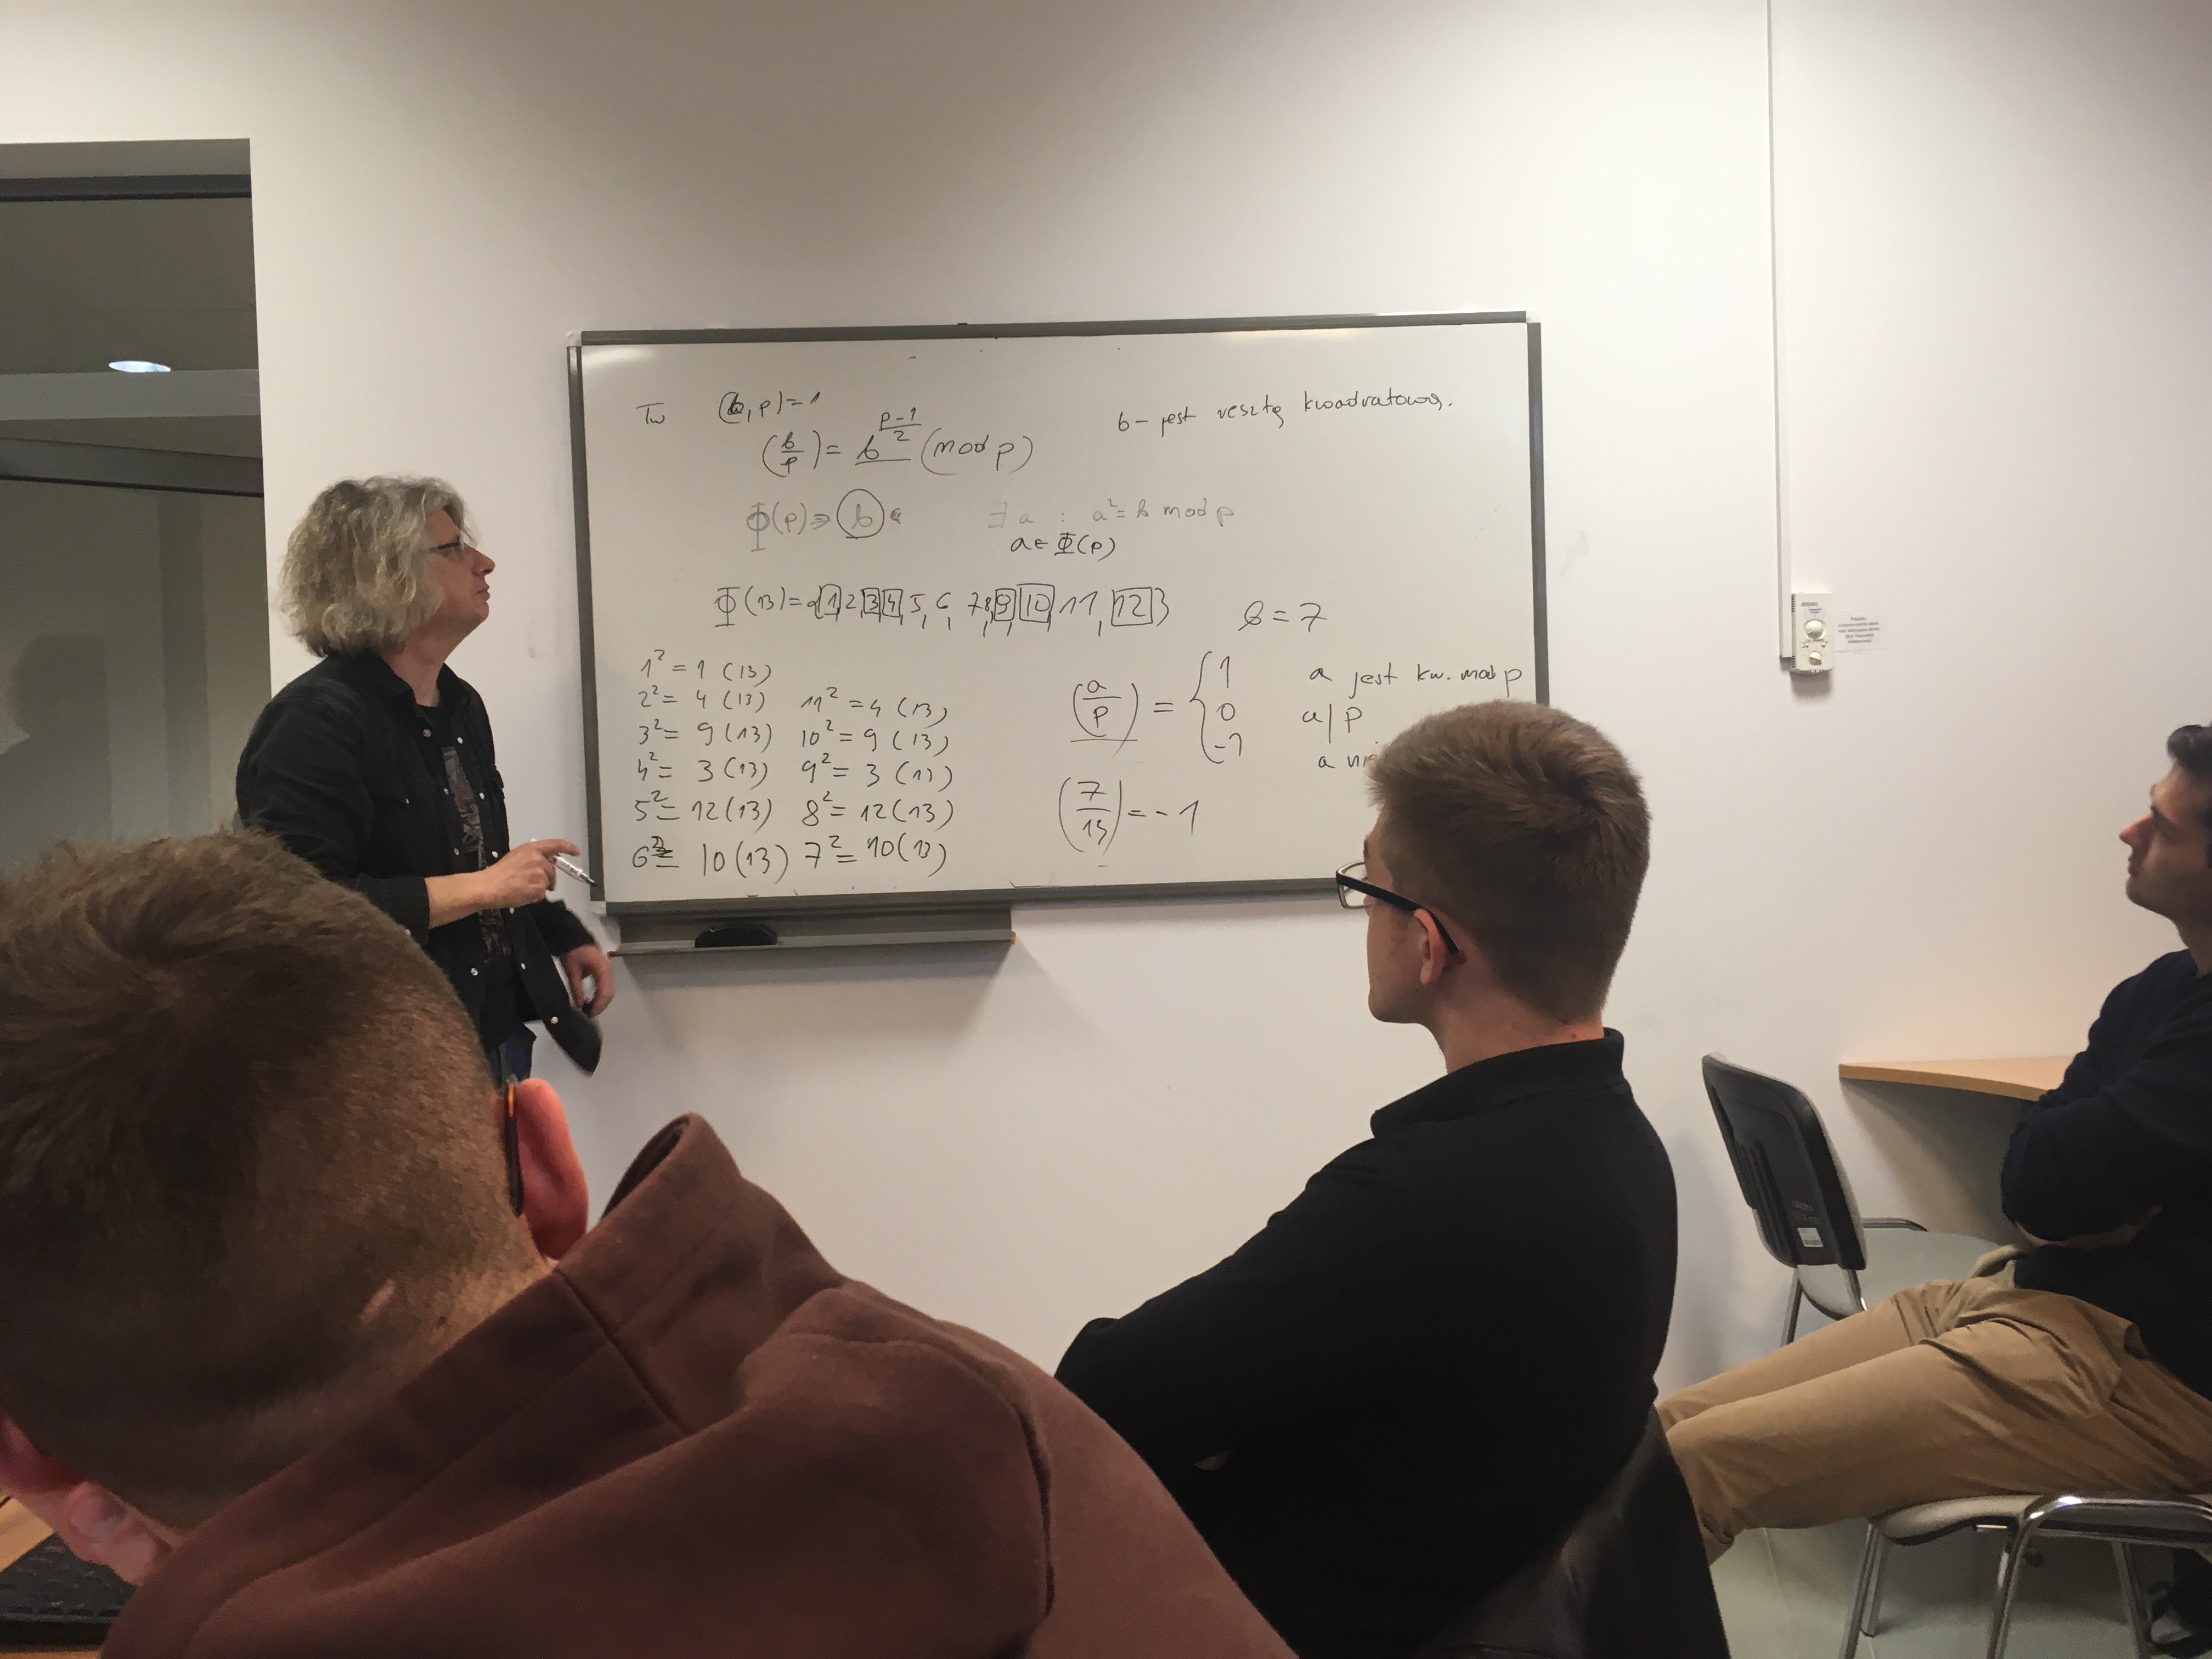 Tw (b, p) = 1
(b/p) = b^((p-1)/2) (mod p)
b - jest resztą kwadratową.
Φ(p) ∋ b
∃ a : a² = b mod p
a ∈ Φ(p)
Φ(13) = {1, 2, 3, 4, 5, 6, 7, 8, 9, 10, 11, 12}
b = 7
1² = 1 (13)
2² = 4 (13) 11² = 4 (13)
3² = 9 (13) 10² = 9 (13)
4² = 3 (13) 9² = 3 (13)
5² = 12 (13) 8² = 12 (13)
6² = 10 (13) 7² = 10 (13)
(a/p) = { 1 a jest kw. mod p
0 a | p
-1 a
(7/13) = -1